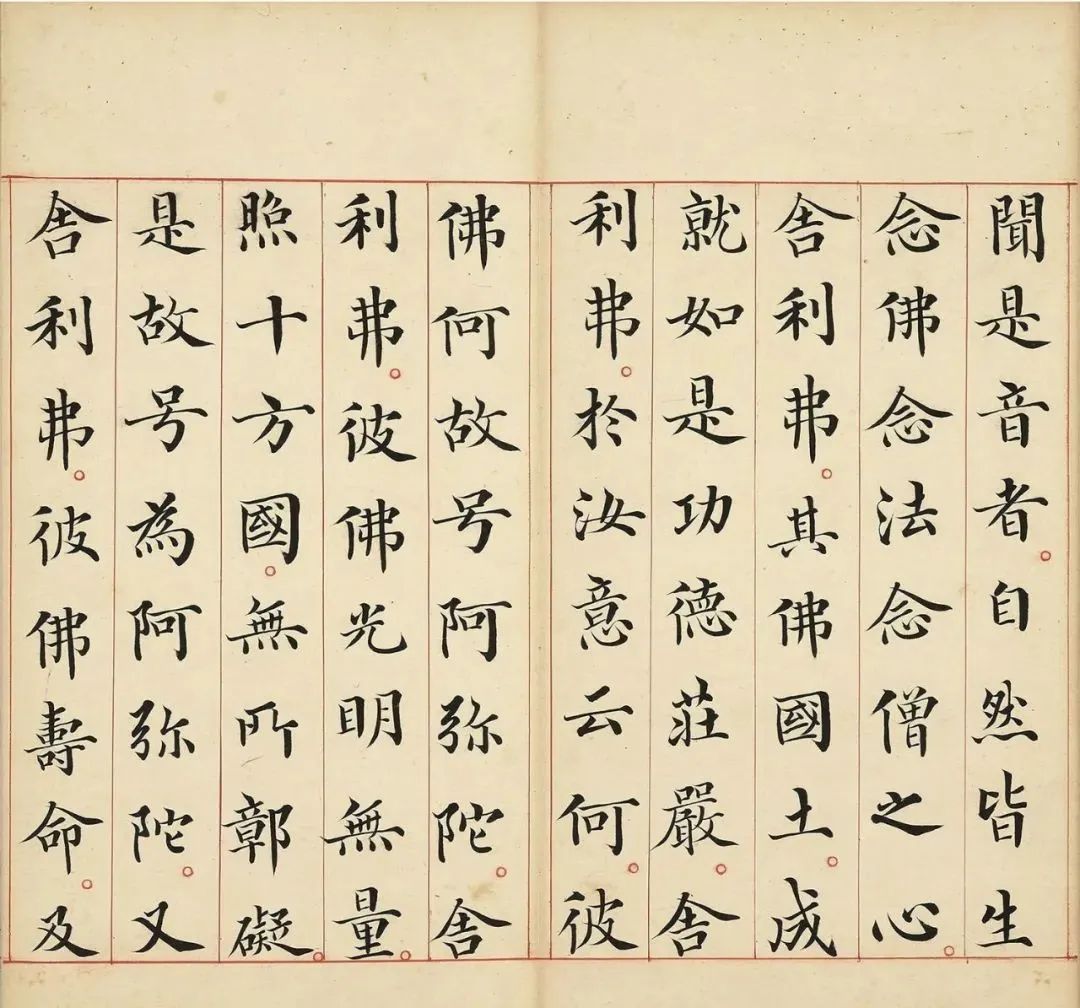 聞是音者。自然皆生
念佛念法念僧之心。
舎利弗。其佛國土。成
就如是功德莊嚴。舎
利弗。於汝意云何。彼
佛何故号阿弥陀。舎
利弗。彼佛光明無量。
照十方國。無所鄣礙。
是故号為阿弥陀。又
舎利弗。彼佛壽命。及